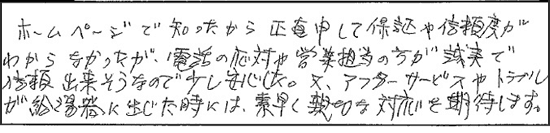 ホームページで知ったから正直申して保証や信頼度が
わからなかったが、電話の応対や営業担当の方が誠実で
信頼出来そうなので少し安心した。又、アフターサービスやトラブル
が給湯器に出じた時には、素早く親切な対応を期待します。